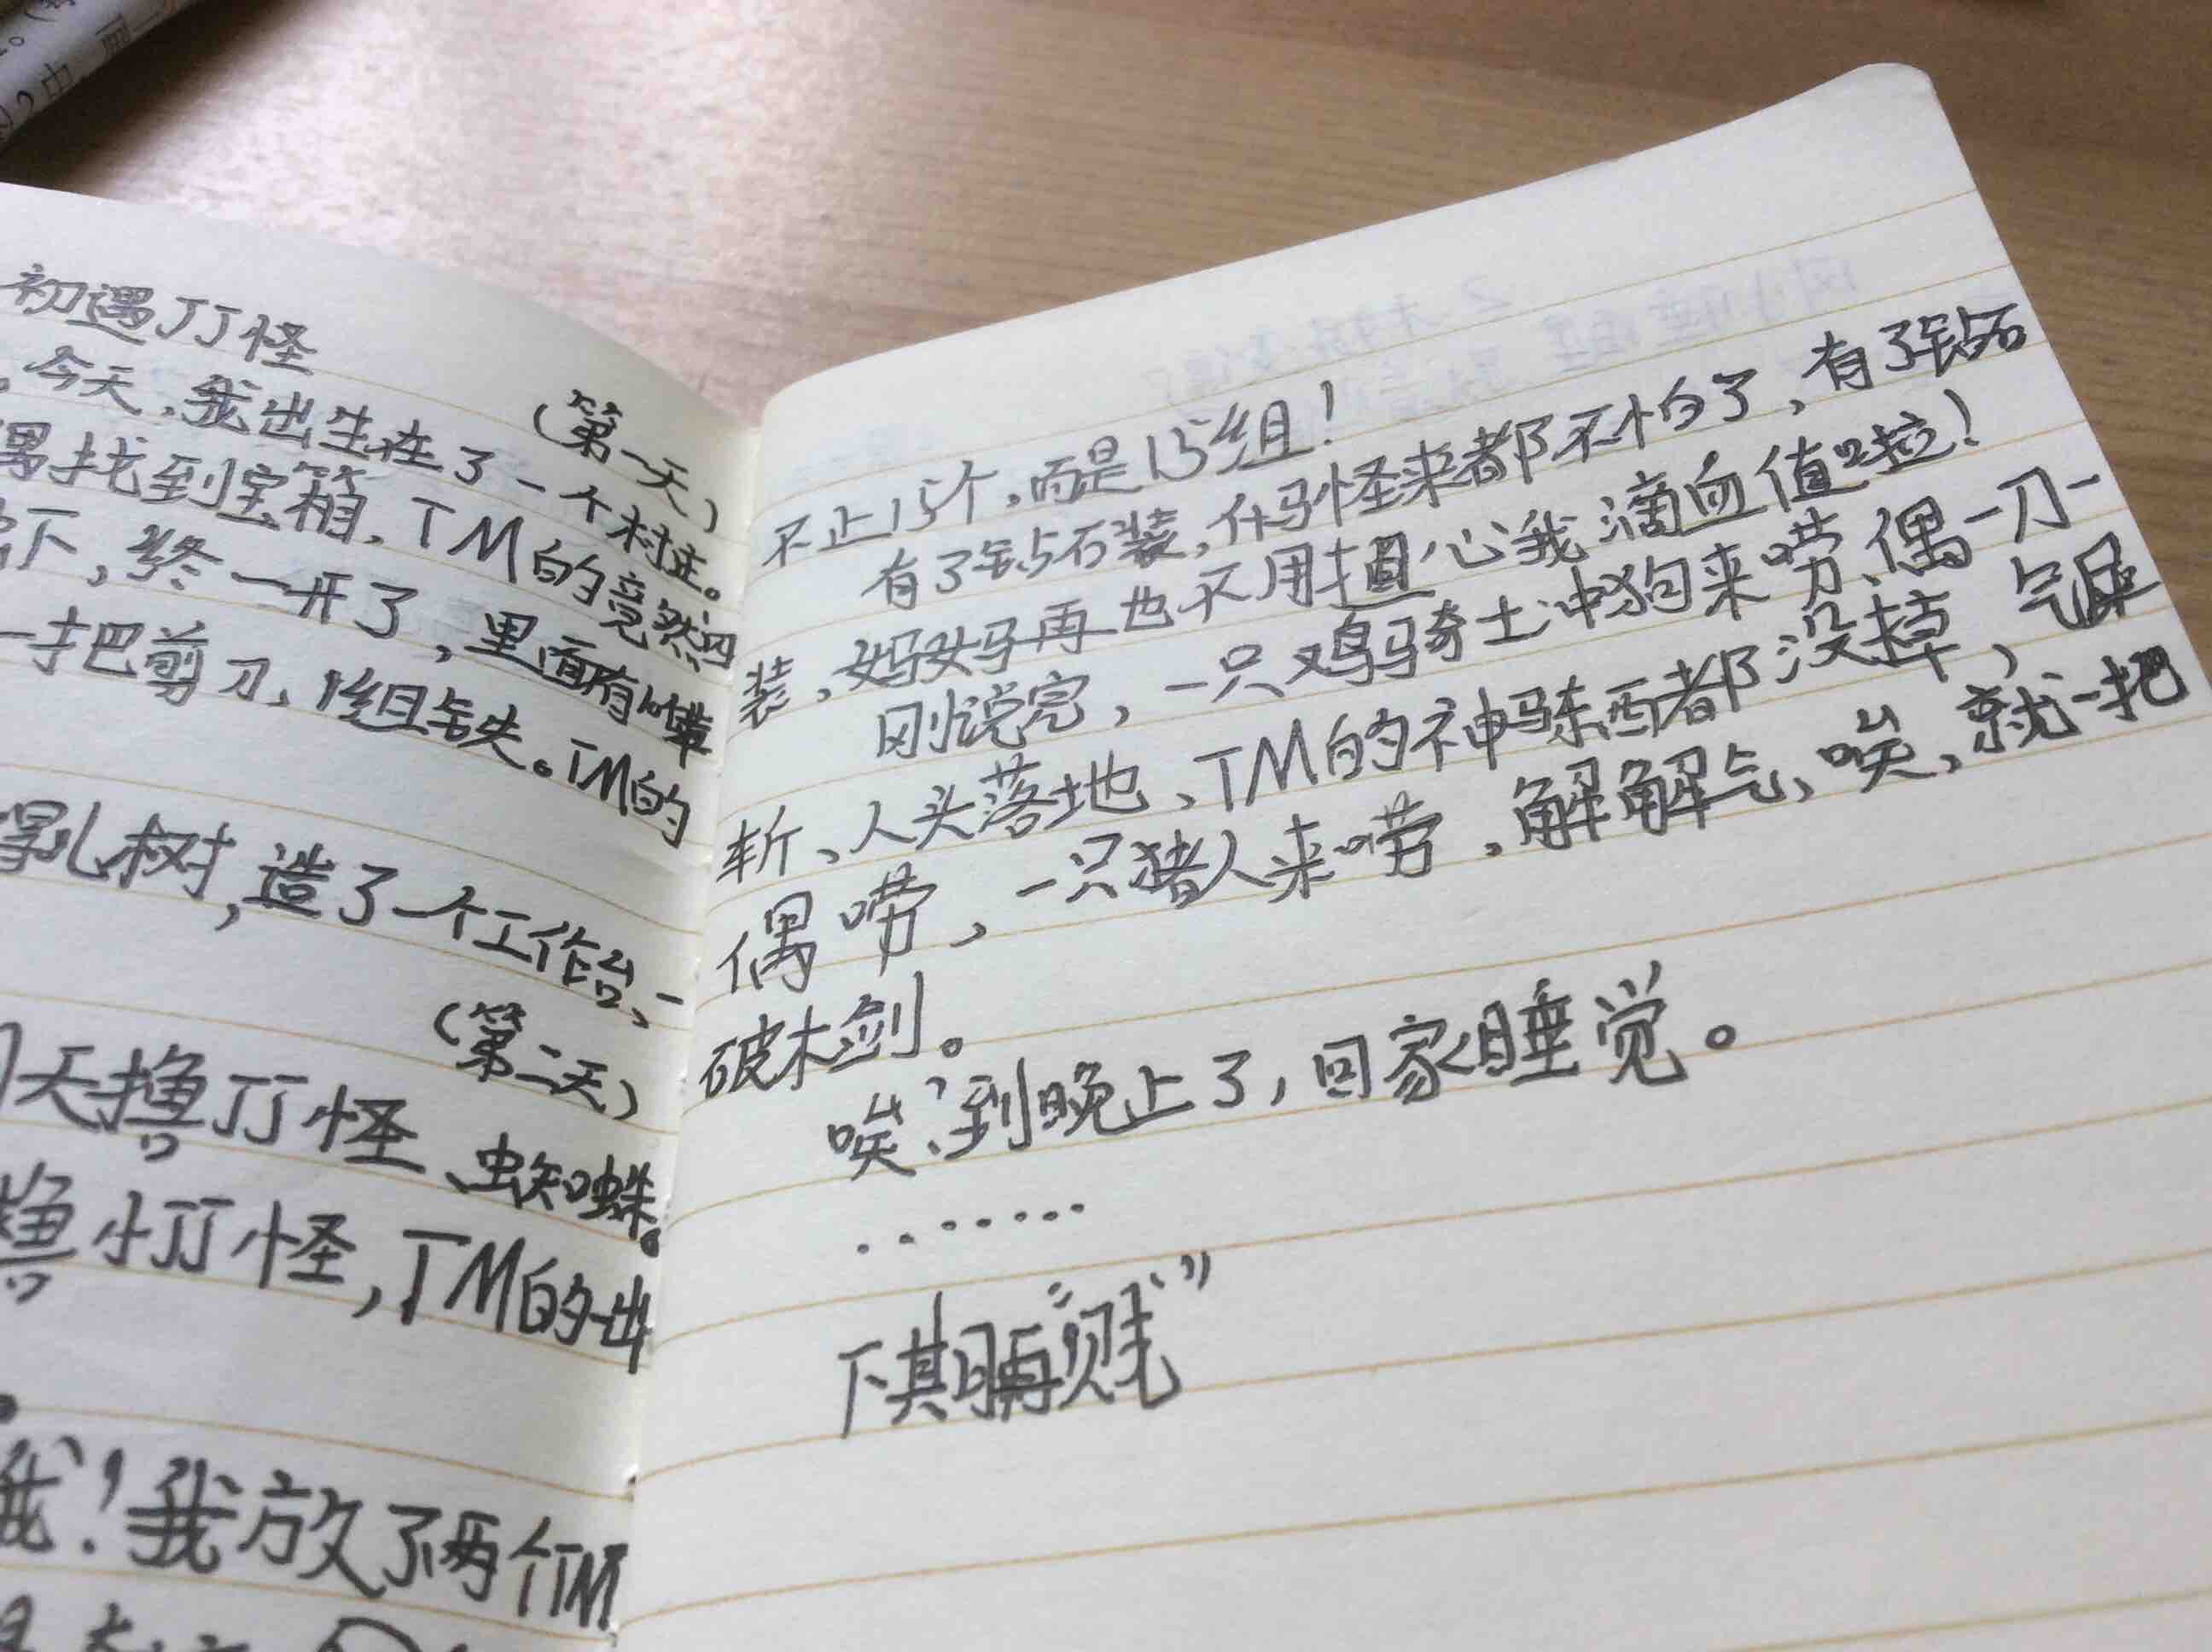 初遇JJ怪
(第一天)
今天,我出生在了一个村庄。
偶找到宝箱,TM的竟然四
下,终一开了,里面有1嘴
一把剪刀、1组铁。TM的
树,造了一个工作台、一
(第二天)
天撸JJ怪、蜘蛛。
撸小JJ怪,TM的出
我!我放了两个TM
不止15个,而是15组!
有了钻石装,什马怪来都不怕了,有了钻石
装,妈妈再也不用担心我滴血值啦!
刚说完,一只鸡骑士冲狗来唠、偶一刀一
斩、人头落地、TM的神马东西都没掉,气尿
偶唠,一只猪人来唠,解解气、唉,就一把
破木剑。
唉、到晚上了,回家睡觉。
······
下期再“贱”